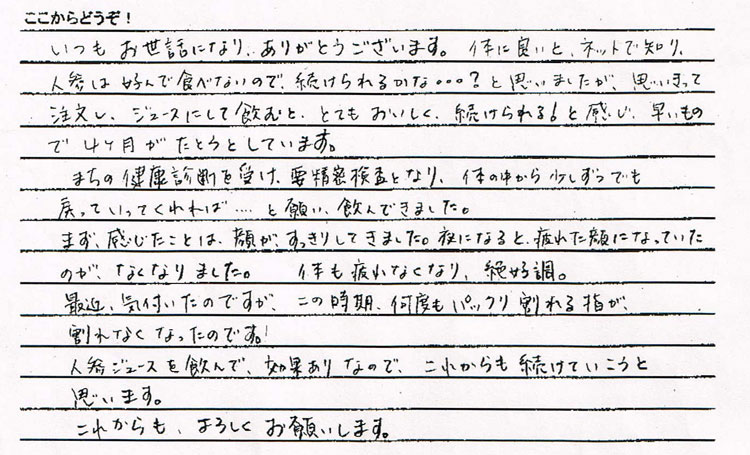 ここからどうぞ!
いつも お世話になり、ありがとうございます。 体に良いと、ネットで知り、
人参は 好んで食べないので、続けられるかな…?と思いましたが、思いきって
注文し、ジュースにして飲むと、とてもおいしく、続けられる!と感じ、早いもの
で 4ヶ月が たとうとしています。
まちの 健康診断を受け、要精密検査となり、体の中から 少しずつでも
戻っていってくれれば…. と願い、飲んできました。
まず、感じたことは、顔が、すっきりしてきました。夜になると、疲れた顔になっていた
のが、なくなりました。 体も疲れなくなり、絶好調。
最近、気付いたのですが、この時期、何度もパックリ割れる指が、
割れなくなったのです!
人参ジュースを飲んで、効果ありなので、これからも続けていこうと
思います。
これからも、よろしくお願いします。